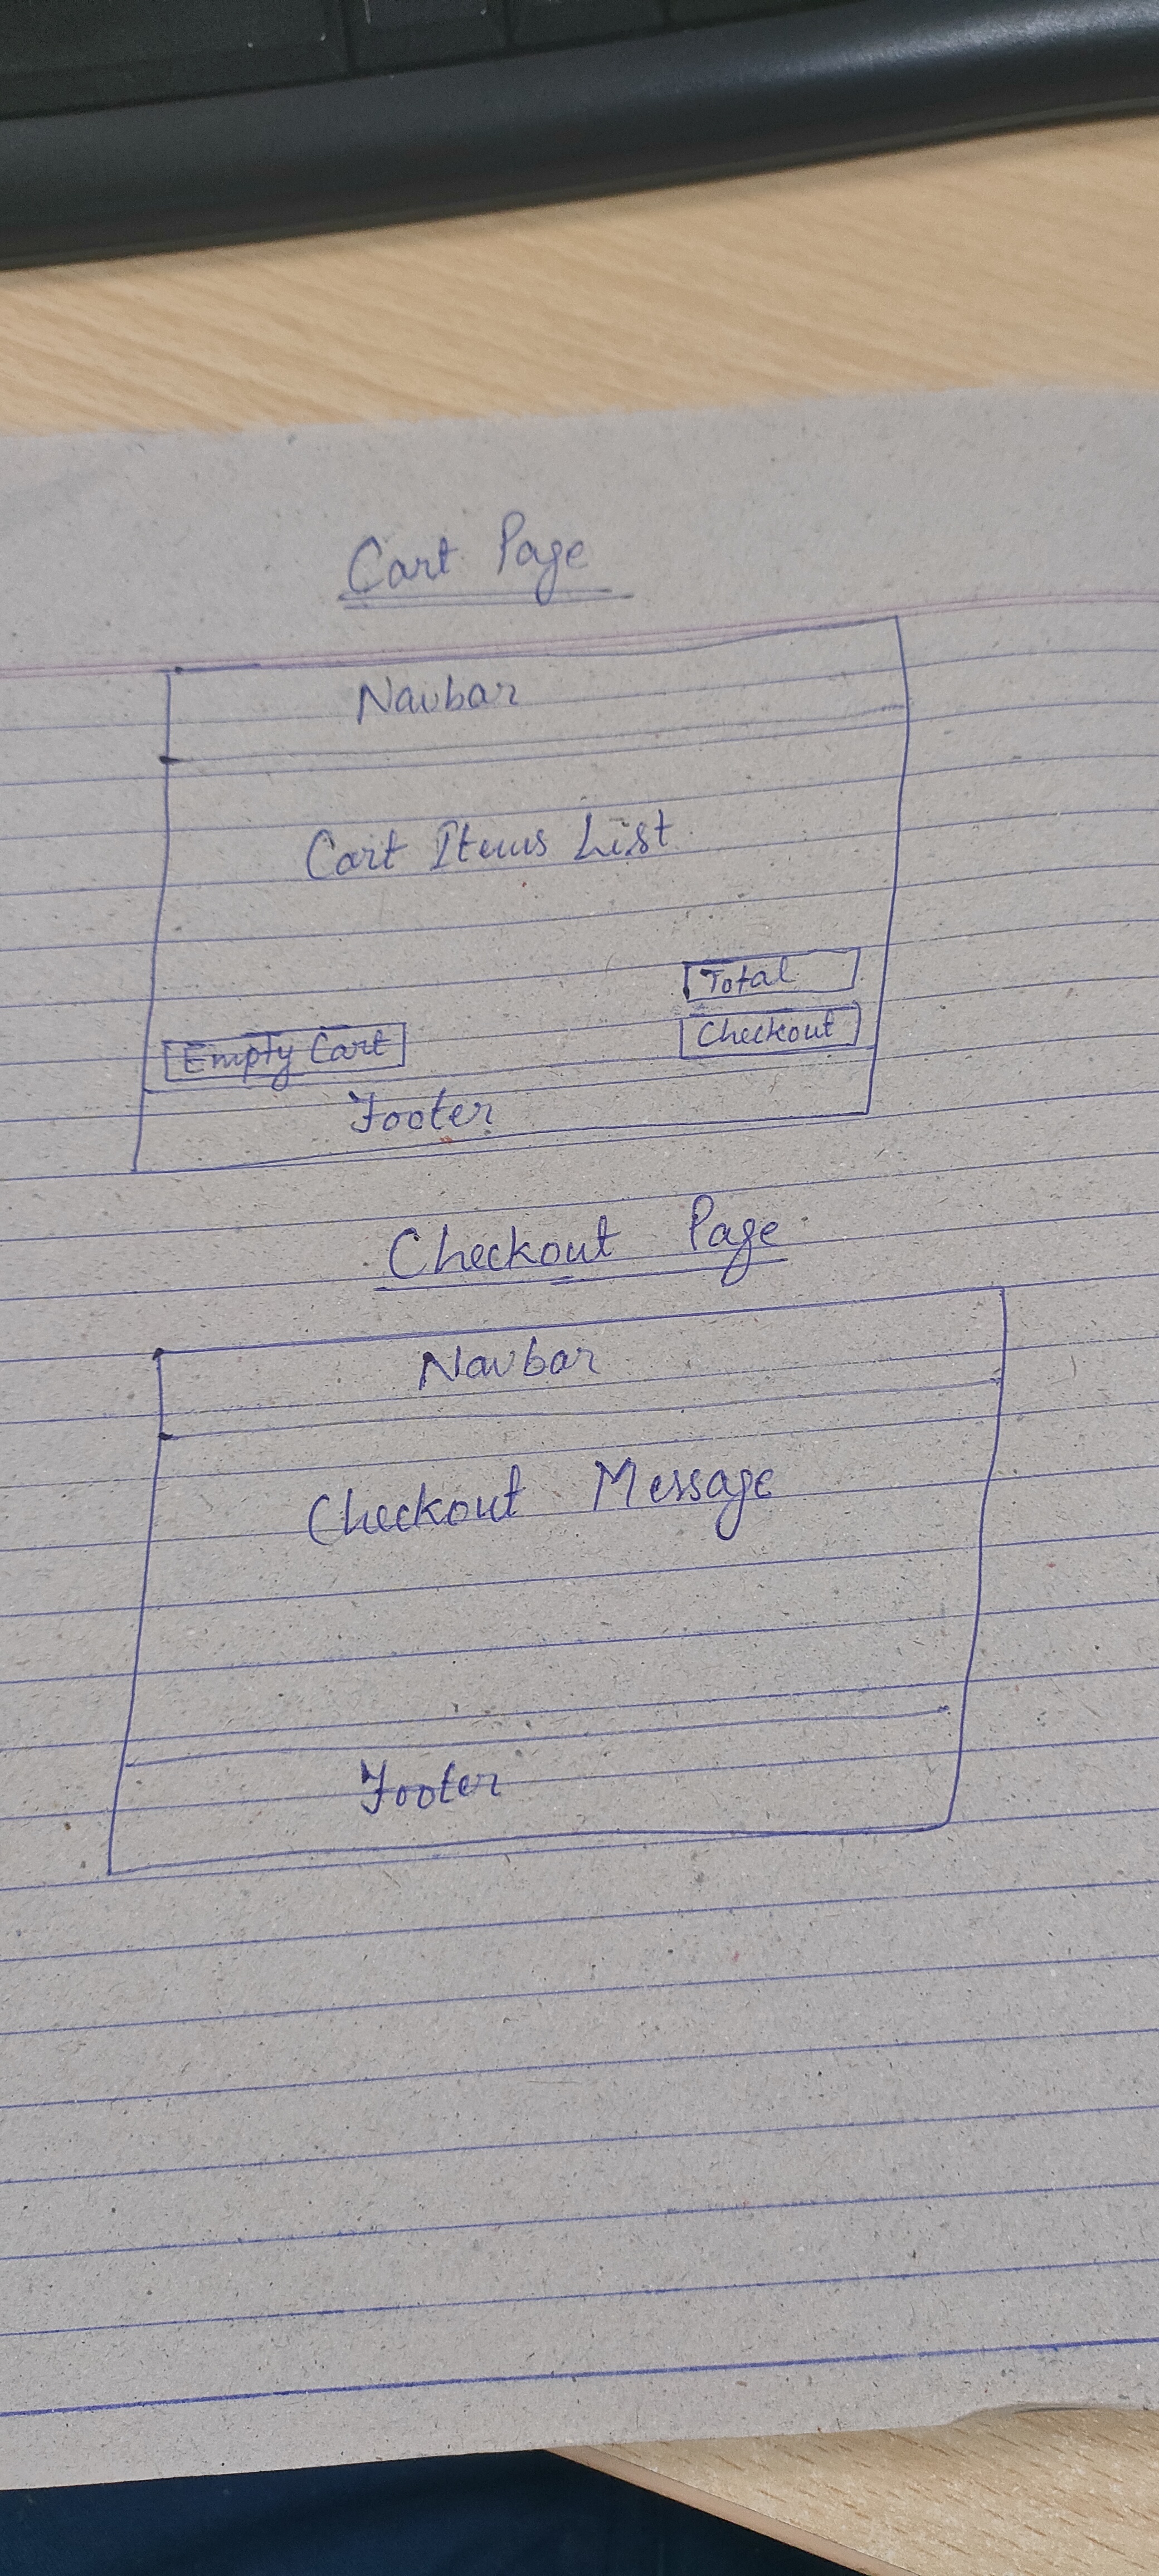 Cart Page
Navbar
Cart Items List
Total
Empty Cart Checkout
Footer
Checkout Page
Navbar
Checkout Message
Footer